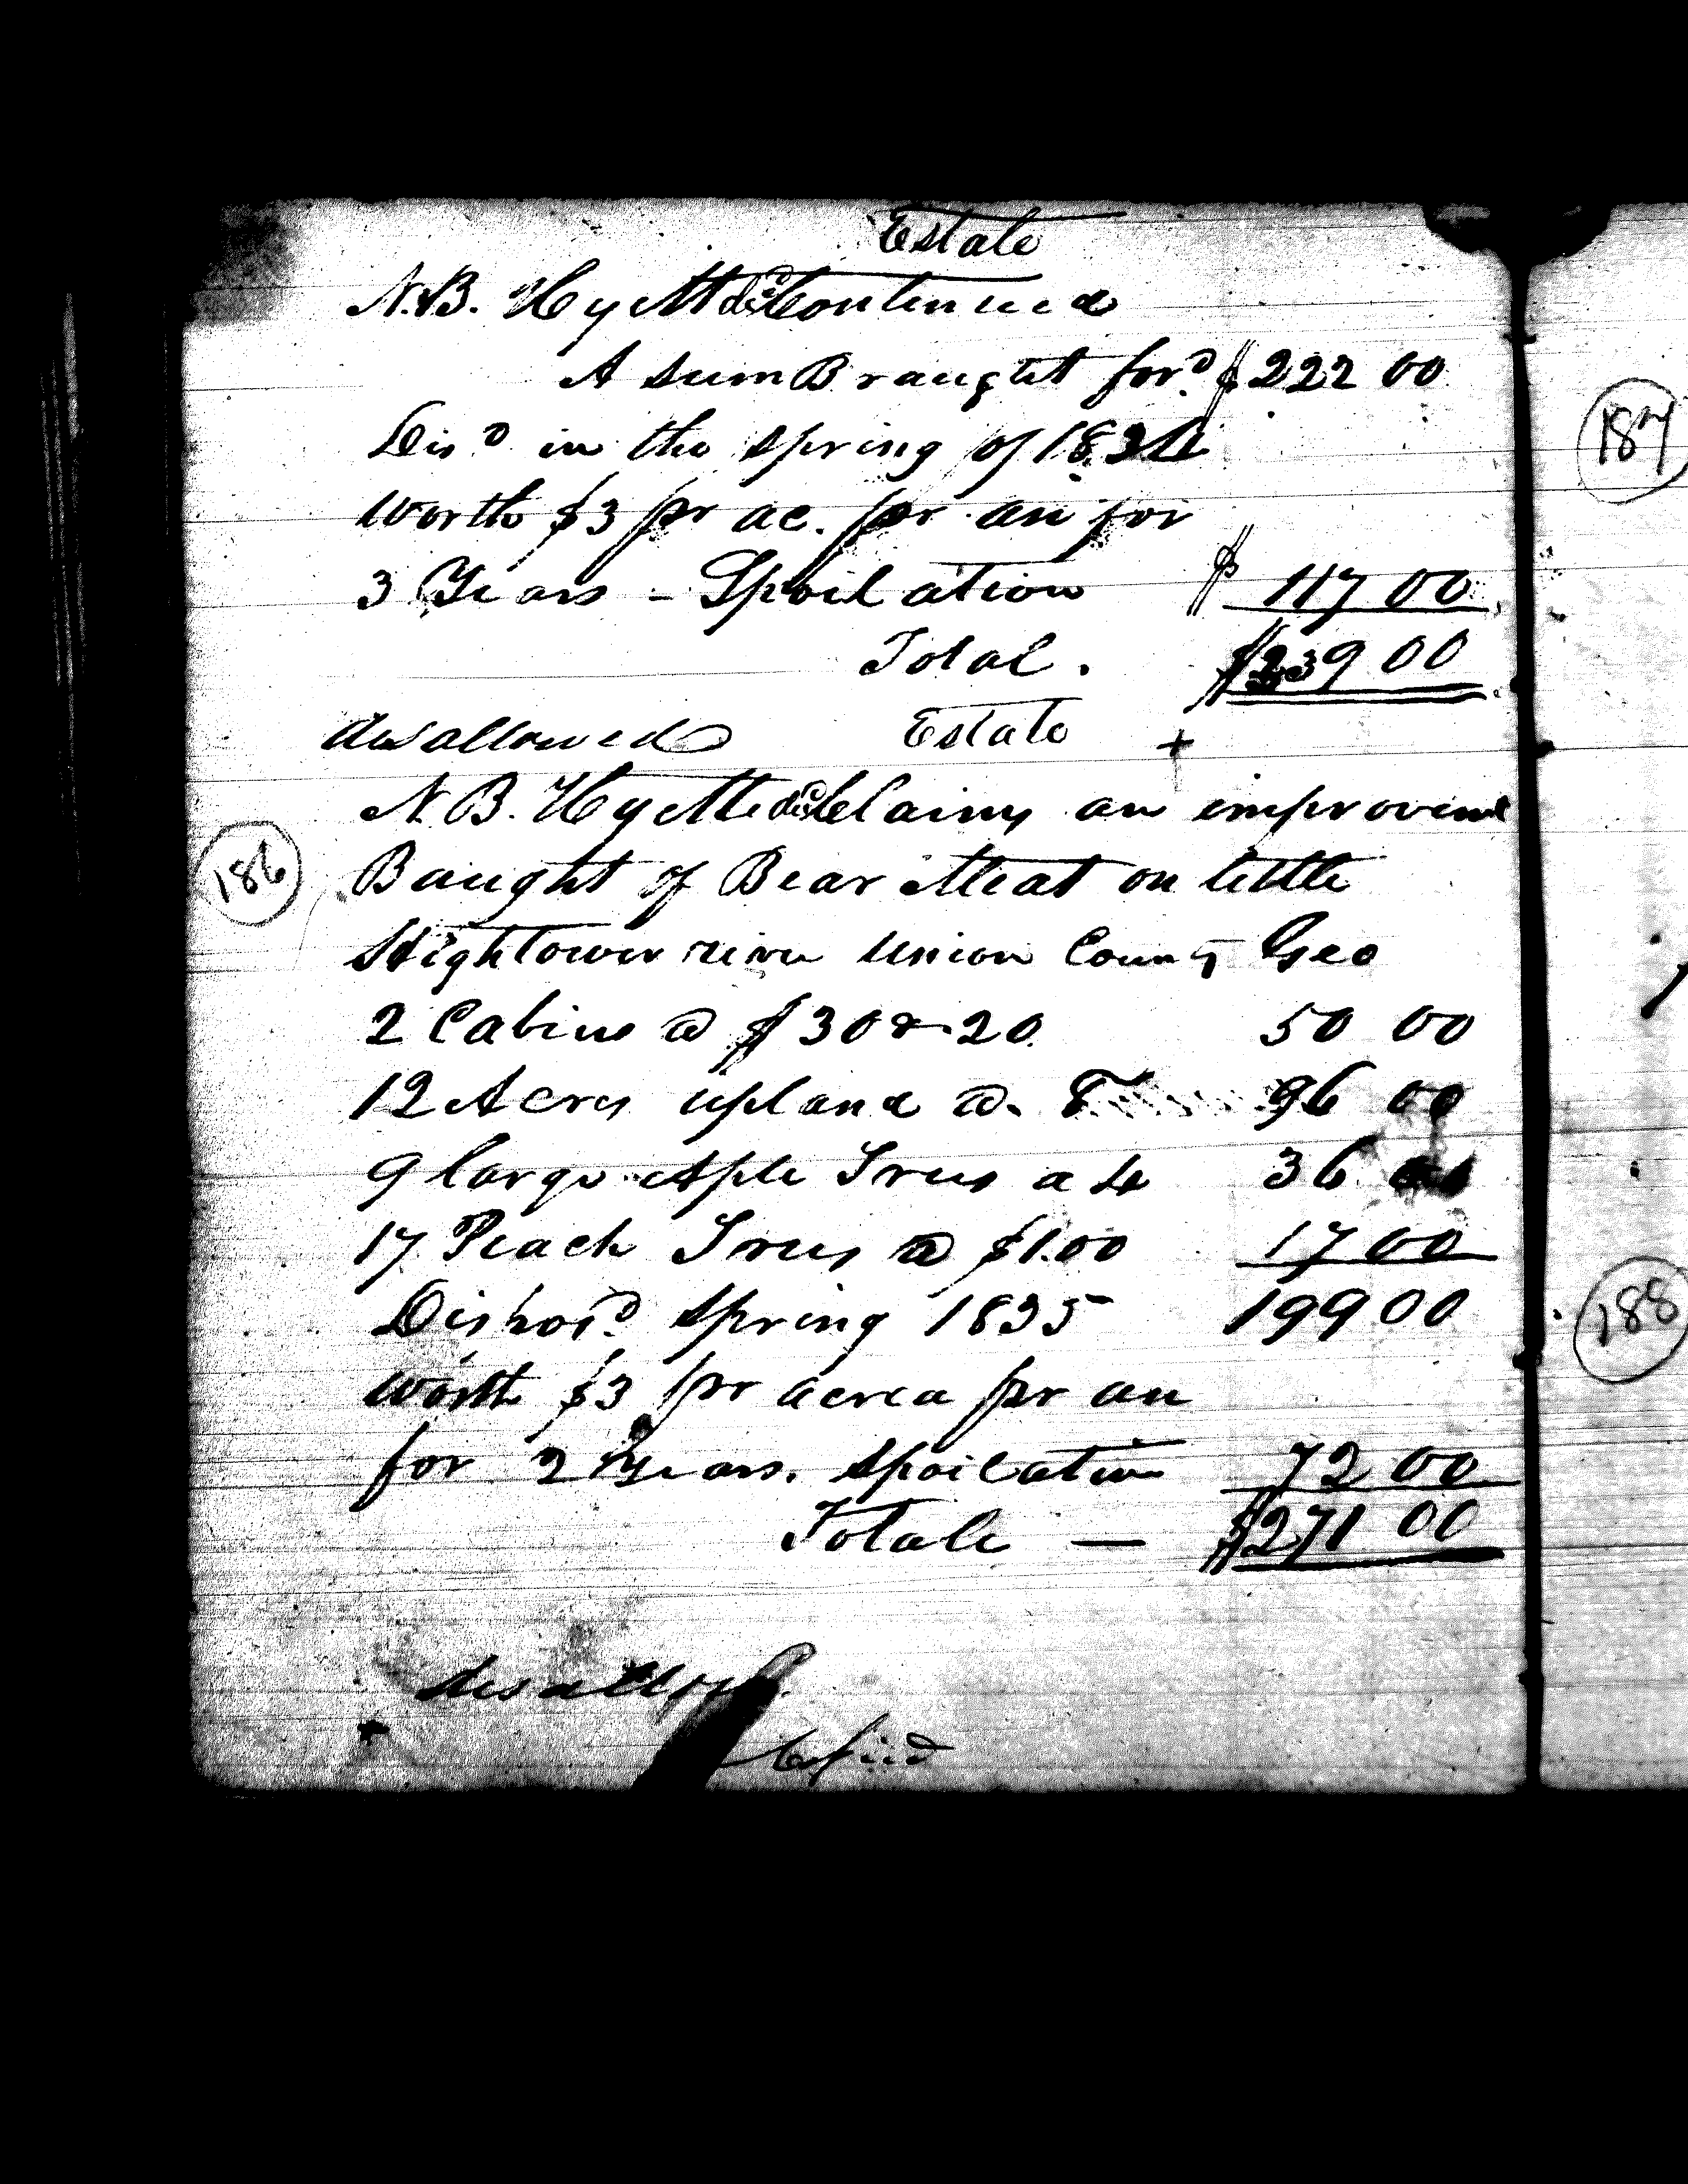 Estate
N.B. Hyatt decd Continued
A sum Braught ford $222 00
Disd in the spring of 1834
worth $3 pr ac. per an for
3 Years - Spoilation $ 117 00
Total. $339 00
disallowed Estate +
N.B. Hyatte decd Claims an improvemt
Baught of Bear Meat on little
Hightower river Union County Geo
186
2 Cabins @ $30 & 20 50 00
12 Acres upland @. 8 96 00
9 large Aple Trees a 4 36
17 Peach Trees @ $1.00 17 00
Disposd spring 1835 199 00
worth $3 pr acrea per an
for 2 Years. Spoilation 72 00
Totale — $271 00
disallowed
Copied
187
188